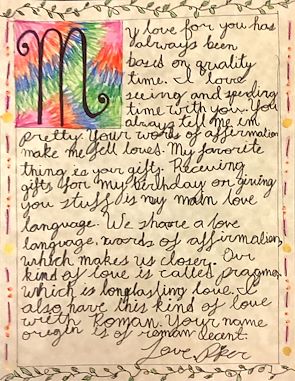 My love for you has
always been
based on quality
time. I love
seeing and spending
time with you. You
always tell me im
pretty. Your words of affirmation
make me fell loves. My favorite
thing is your gifts. Receiving
gifts for my birthday or giving
you stuff is my main love
language. We share a love
language, words of affirmation,
which makes us closer. Our
kind of love is called pragma,
which is longlasting love. I
also have this kind of love
with Roman. Your name
origin is of roman decent.
Love,